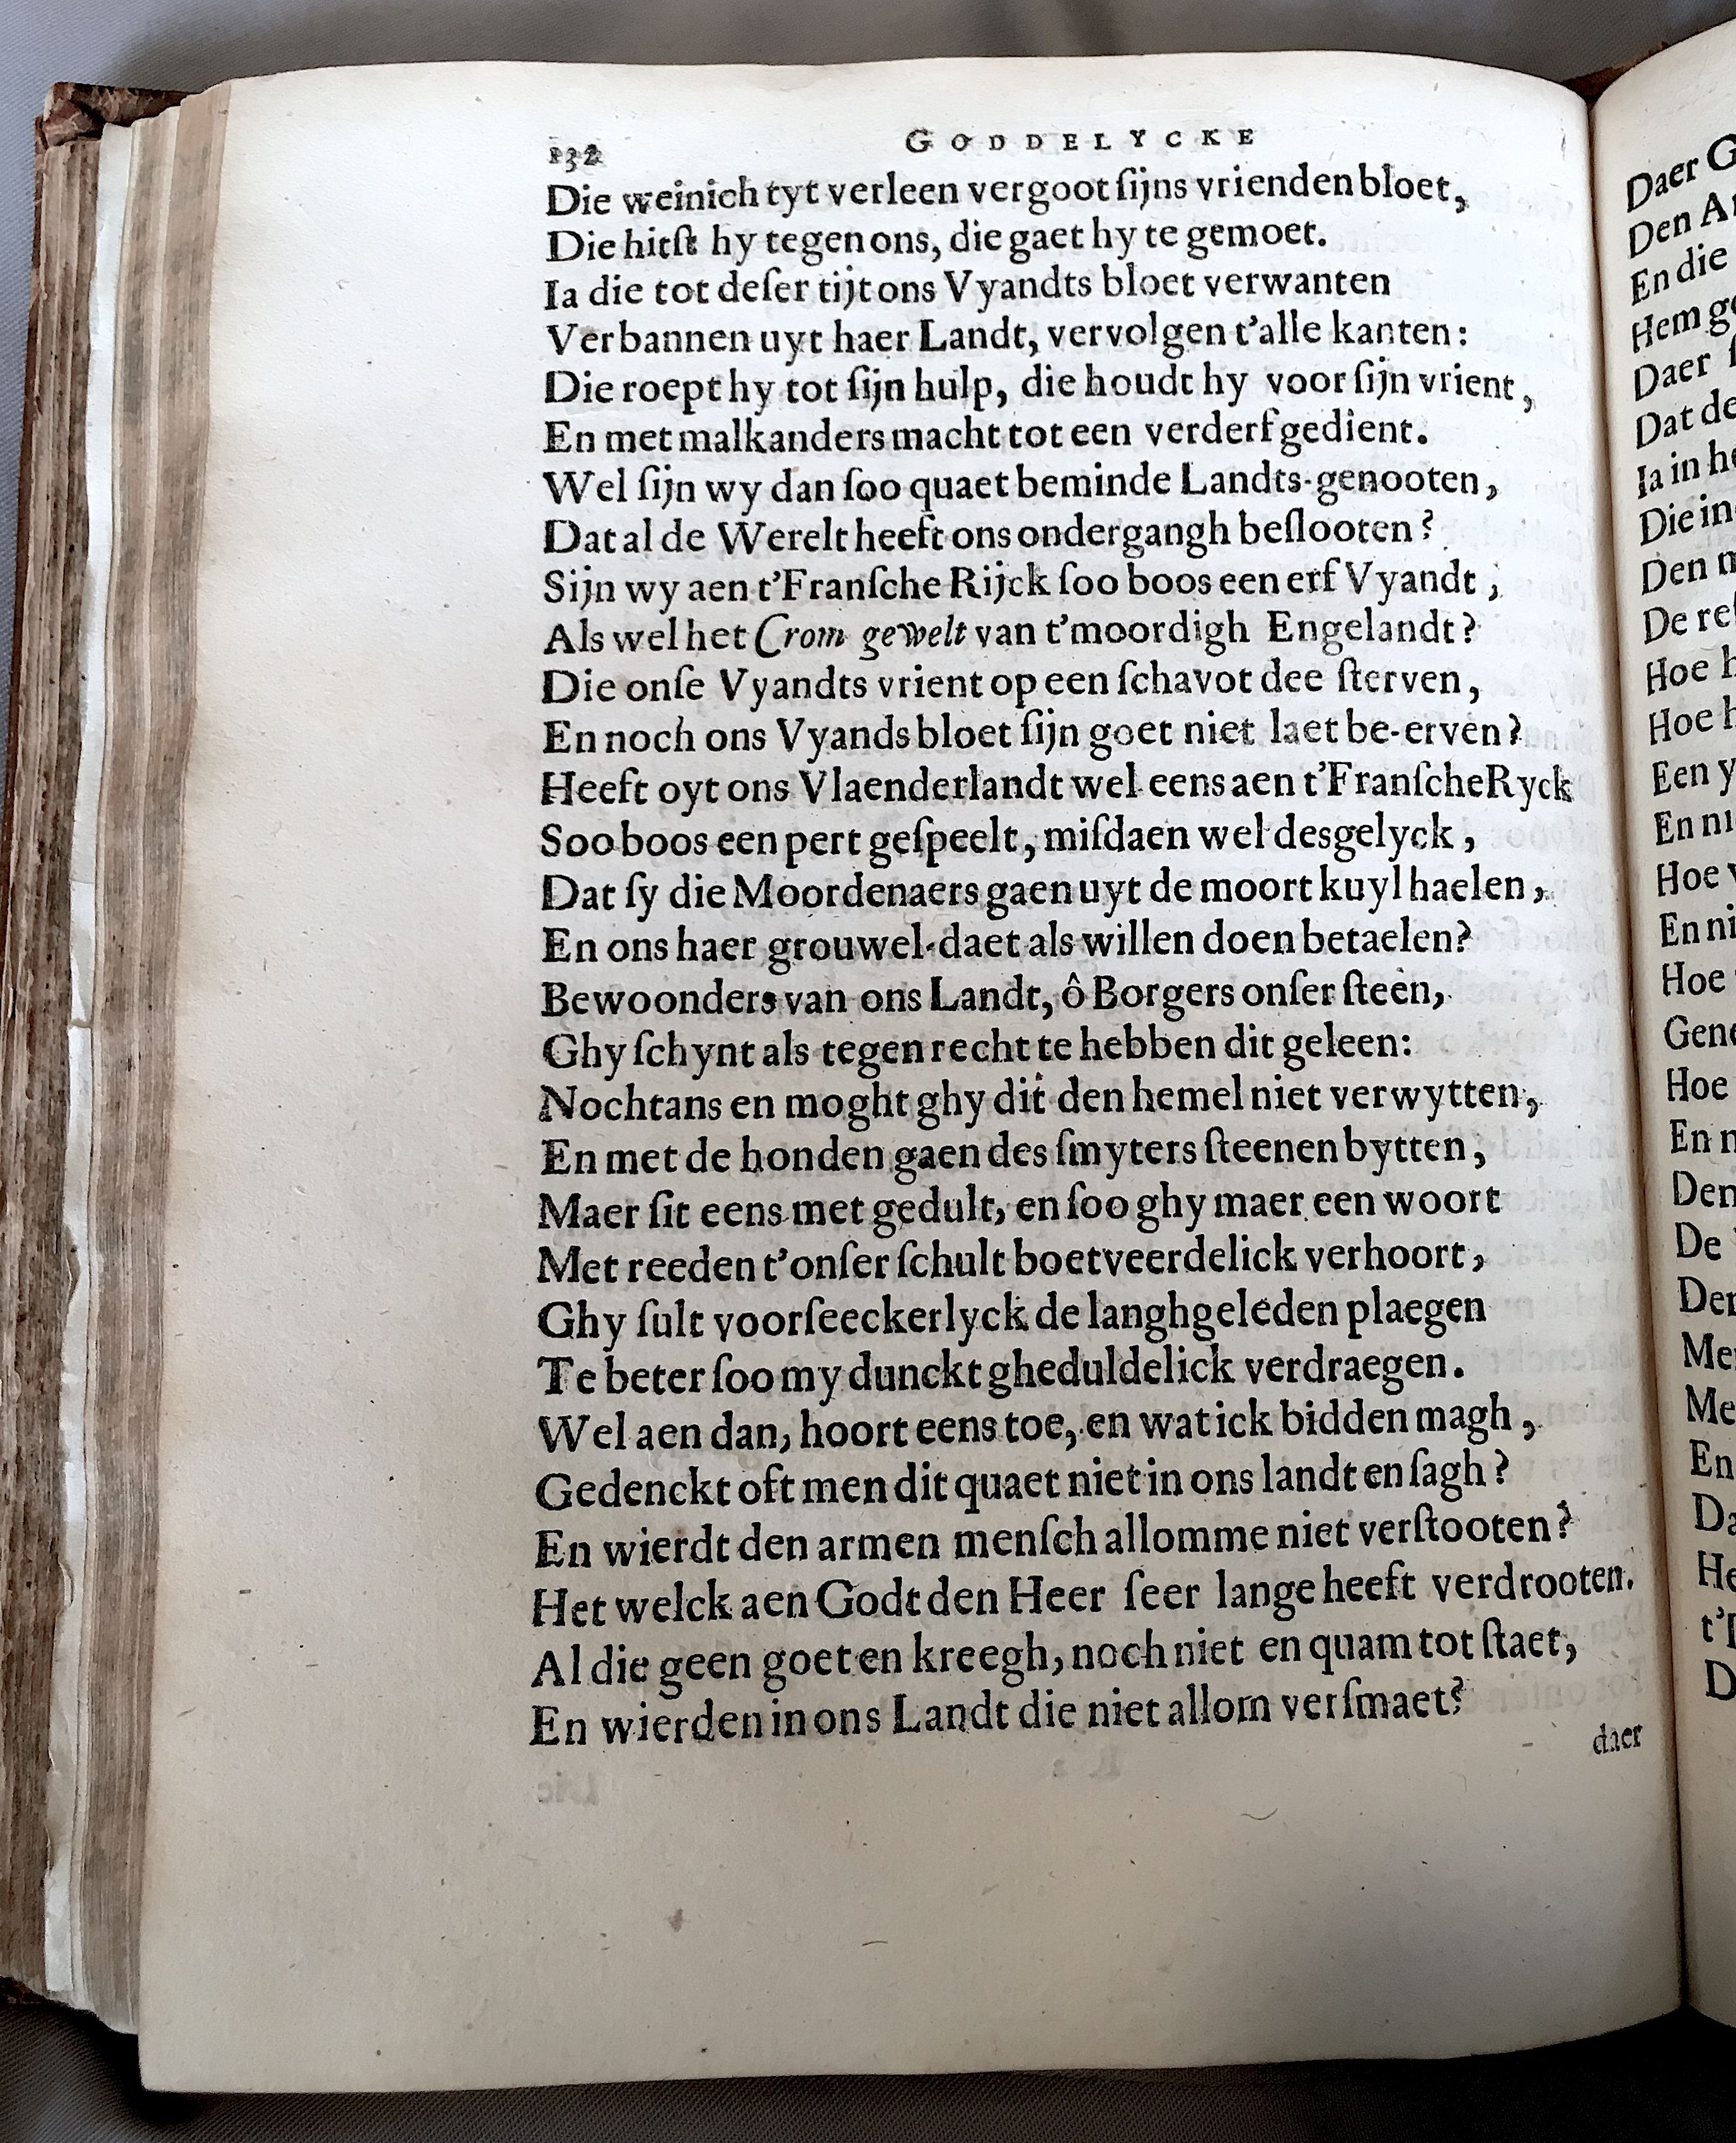 132 GODDELYCKE
Die weinich tyt verleen vergoot ſijns vrienden bloet,
Die hitſt hy tegen ons, die gaet hy te gemoet.
Ia die tot deſer tijt ons Vyandts bloet verwanten
Verbannen uyt haer Landt, vervolgen t'alle kanten:
Die roept hy tot ſijn hulp, die houdt hy voor ſijn vrient,
En met malkanders macht tot een verderf gedient.
Wel ſijn wy dan ſoo quaet beminde Landts-genooten,
Dat al de Werelt heeft ons ondergangh beſlooten?
Sijn wy aen t'Franſche Rijck ſoo boos een erf Vyandt,
Als wel het Crom gewelt van t'moordigh Engelandt?
Die onſe Vyandts vrient op een ſchavot dee ſterven,
En noch ons Vyands bloet ſijn goet niet laet be-erven?
Heeft oyt ons Vlaenderlandt wel eens aen t'Franſche Ryck
Soo boos een pert geſpeelt, miſdaen wel desgelyck,
Dat ſy die Moordenaers gaen uyt de moort kuyl haelen,
En ons haer grouwel-daet als willen doen betaelen?
Bewoonders van ons Landt, ô Borgers onſer ſteen,
Ghy ſchynt als tegen recht te hebben dit geleen:
Nochtans en moght ghy dit den hemel niet verwytten,
En met de honden gaen des ſmyters ſteenen bytten,
Maer ſit eens met gedult, en ſoo ghy maer een woort
Met reeden t'onſer ſchult boetveerdelick verhoort,
Ghy ſult voorſeeckerlyck de langhgeleden plaegen
Te beter ſoo my dunckt gheduldelick verdraegen.
Wel aen dan, hoort eens toe, en wat ick bidden magh,
Gedenckt oft men dit quaet niet in ons landt en ſagh?
En wierdt den armen menſch allomme niet verſtooten?
Het welck aen Godt den Heer ſeer lange heeft verdrooten.
Al die geen goet en kreegh, noch niet en quam tot ſtaet,
En wierden in ons Landt die niet allom verſmaet?
daer
Daer
Den
En die
Hem
Daer
Dat
Ia in
Die in
Den
De
Hoe
Hoe
Een
En
Hoe
En
Hoe
Hoe
En
De
En